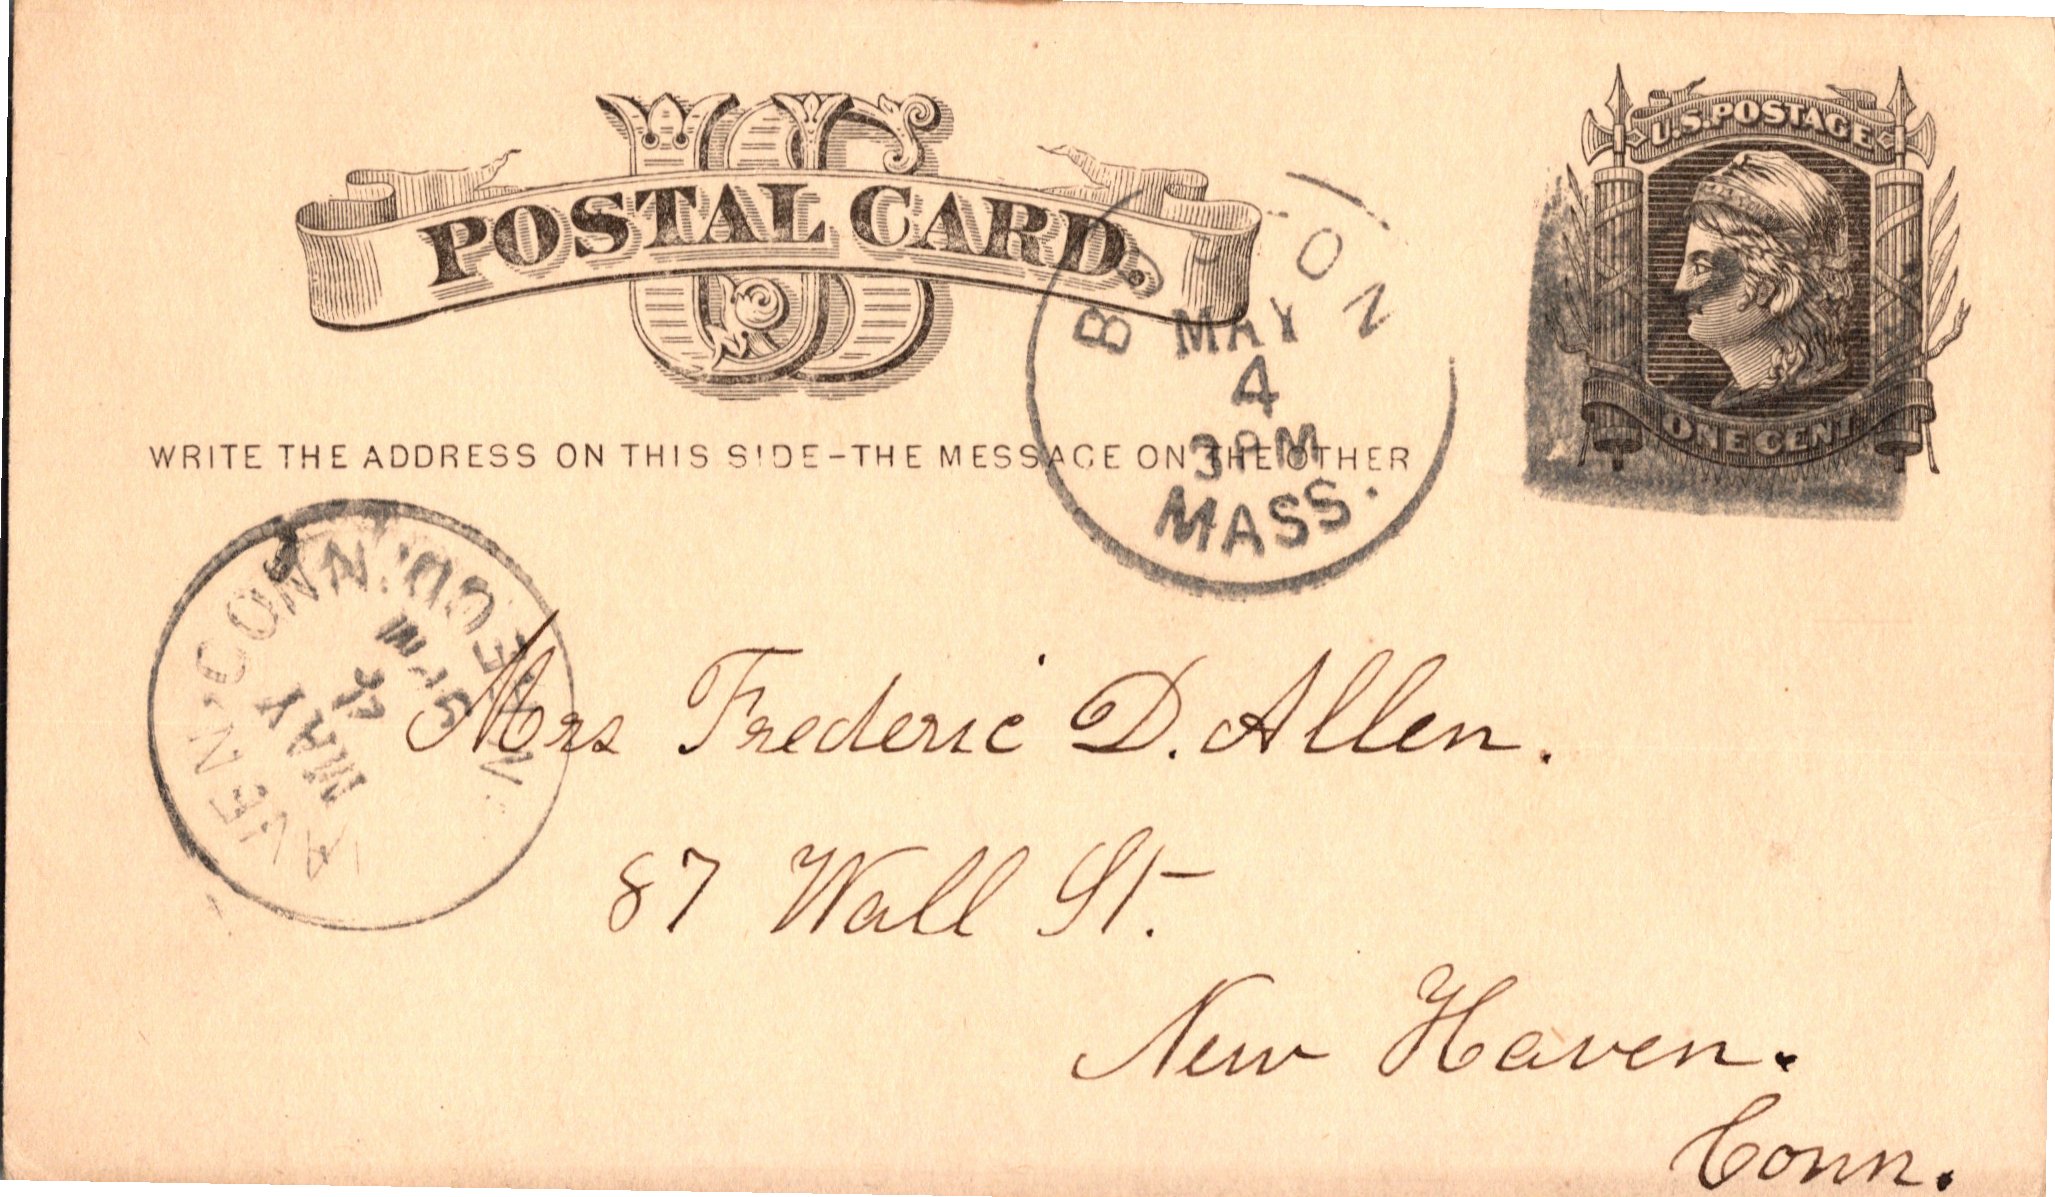 US
POSTAL CARD.
U.S. POSTAGE
ONE CENT
WRITE THE ADDRESS ON THIS SIDE-THE MESSAGE ON THE OTHER
BOSTON
MAY
4
MASS.
MAY
4
CONN.
REC'D.
Mrs Frederic D. Allen.
87 Wall St.
New Haven.
Conn.